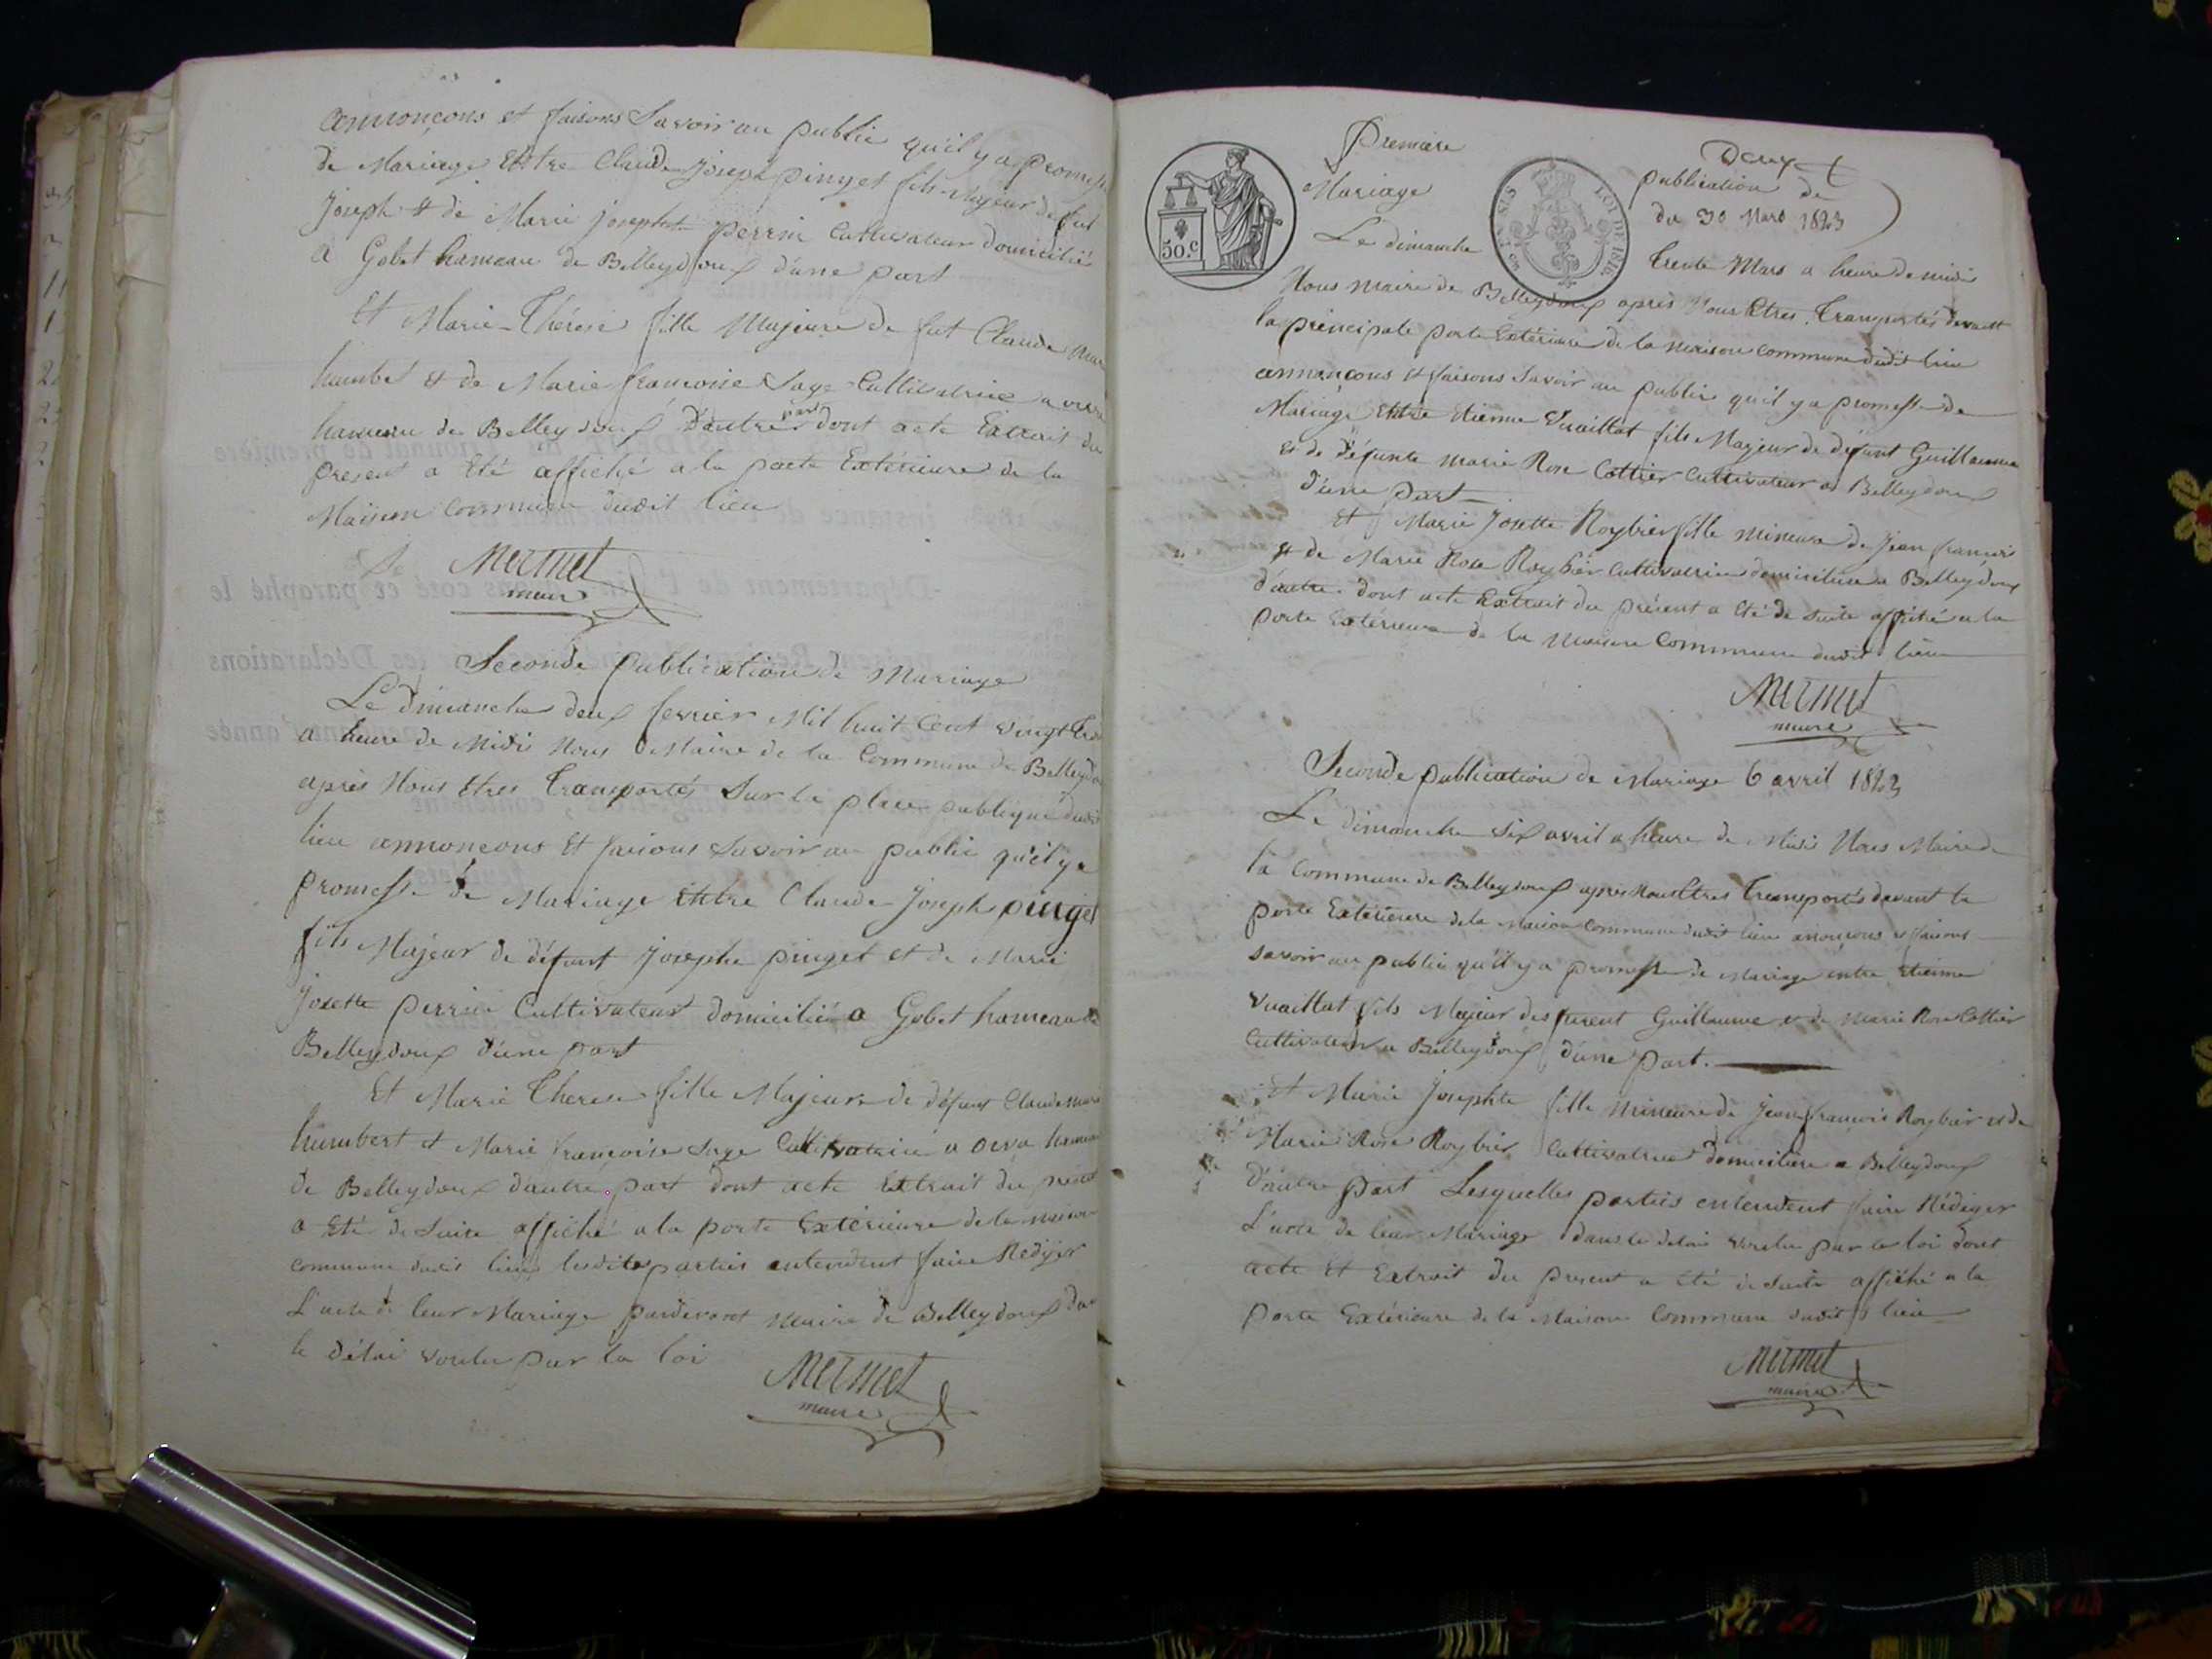 annonçons et faisons Savoir au public qu'il y a promesse
de Mariage Entre Claude Joseph pinget fils Majeur de fut
Joseph & de Marie josephte perrin Cultivateur domicilié
a Gobet hameau de Belleydoux d'une part
Et Marie-Thérèse fille Majeure de fut Claude
humbet & de Marie françoise Sage Cultivatrice a
hameau de Belleydoux D'autre part dont acte Extrait du
present a Eté affiché a la porte Extérieure de la
Maison Commune dudit lieu
Mermet
maire
Seconde publication de Mariage
Le dimanche deux fevrier Mil huit Cent vingt
a heure de Midi Nous Maire de la Commune de Belleydoux
après Nous Etres Transportés Sur la place publique dudit
lieu annoncons Et faisons Savoir au public qu'il y a
promesse de Mariage Entre Claude Joseph pinget
fils Majeur de défunt joseph pinget et de Marie
Josette perrin Cultivateur domicilié a Gobet hameau de
Belleydoux d'une part
Et Marie Therese fille Majeure de défunt Claude marie
humbert et Marie françoise Sage Cultivatrice a Orva hameau
de Belleydoux d'autre part dont acte Extrait du present
a Eté de Suite affiché a la porte Extérieure de la maison
commune dudit lieu lesdites parties entendent faire Redijer
L'acte de leur Mariage pardevant Maire de Belleydoux dans
le délai voulu par la loi
Mermet
maire
Premiere Deux
Mariage publication de
du 30 Mars 1823
50.C
LOI DE 1816
Le dimanche Trente Mars a heure de midi
Nous Maire de Belleydoux après Nous Etres Transportés devant
la principale porte Extérieure de la maison commune dudit lieu
annonçons et faisons Savoir au public qu'il y a promesse de
Mariage Entre Etienne Vuaillat fils Majeur de défunt Guillaume
et de défunte marie Rose Cottier Cultivateur a Belleydoux
d'une part
Et Marie Josette Roybier fille mineure de Jean françois
& de Marie Rose Roybier Cultivatrice domiciliée a Belleydoux
d'autre dont acte Extrait du présent a Eté de suite affiché a la
porte Extérieure de la Maison Commune dudit lieu
Mermet
maire
Seconde publication de Mariage 6 avril 1823
Le dimanche Six avril a heure de Midi Nous Maire de
la Commune de Belleydoux après Nous Etres Transportés devant la
porte Extérieure de la Maison commune dudit lieu anonçons et faisons
savoir au public qu'il y a promesse de Mariage entre Etienne
Vuaillat fils Majeur de Guillaume et de marie Rose Cottier
Cultivateur a Belleydoux d'une part.
Et Marie Josephte fille Mineure de Jean françois Roybier et de
Marie Rose Roybier Cultivatrice domiciliée a Belleydoux
D'autre part Lesquelles parties entendent faire Rédiger
L'acte de leur Mariage dans le delai voulu par la loi dont
acte Et Extrait du present a Eté de suite affiché a la
porte Extérieure de la Maison Commune dudit lieu
Mermet
maire